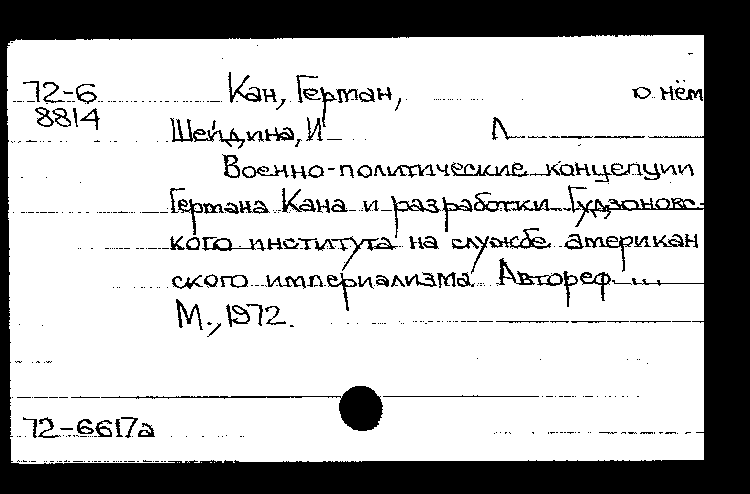 72-6 Кан, Герман, о нём
8814
Шейдина, И Л
Военно-политические концепции
Германа Кана и разработки Гудзоновс-
кого института на службе американ
ского империализма. Автореф. ...
М., 1972.
72-6617а